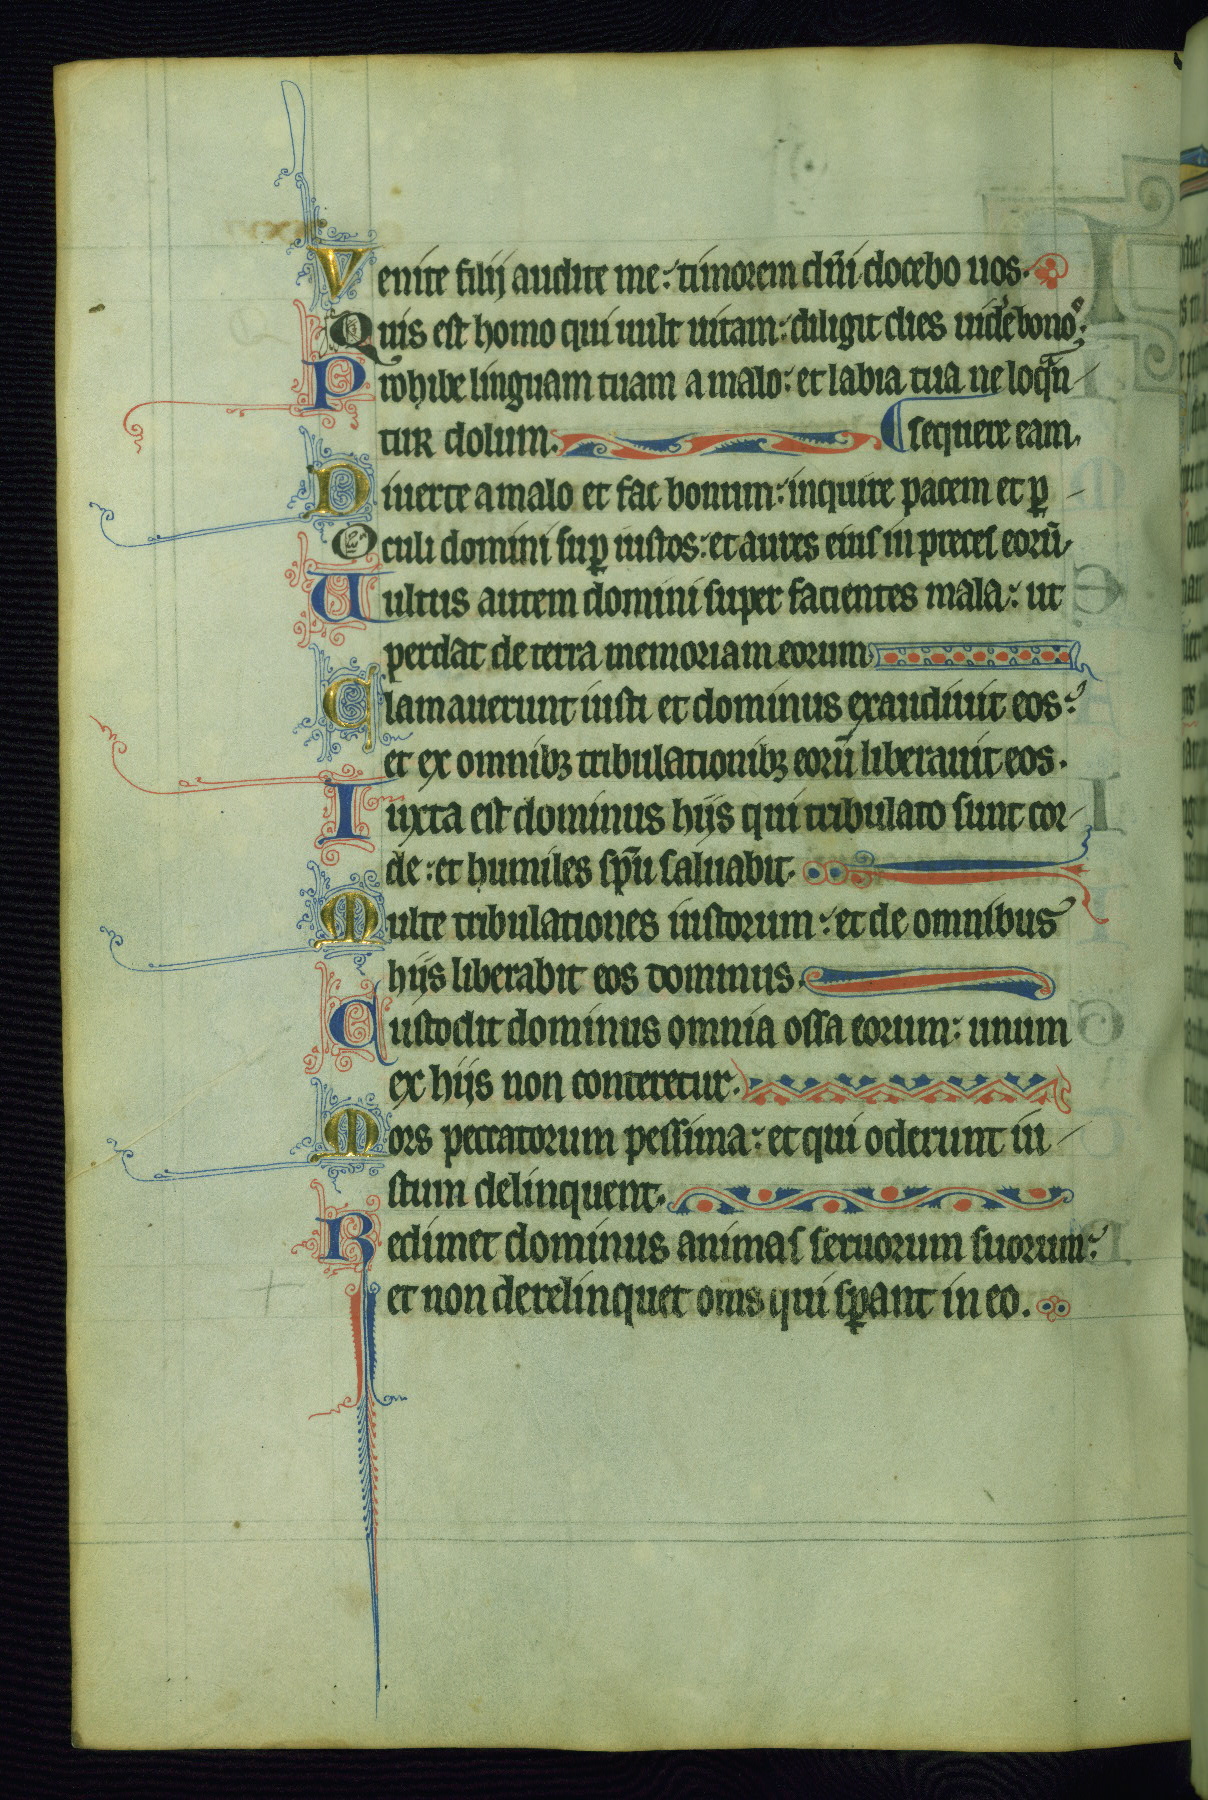 Venite filij audite me: timorem dn̄i docebo uos.
Quis est homo qui uult uitam: diligit dies uid̾e bonoꝰ:
Prohibe linguam tuam a malo: et labia tua ne loqn̄
tur dolum. sequere eam.
Diuerte a malo et fac bonum: inquire pacem et ꝑ
Oculi domini suꝑ iustos: et aures eius in preces eorū
Uultus autem domini super facientes mala: ut
perdat de terra memoriam eorum
Clamauerunt iusti et dominus exaudiuit eos:
et ex omnibꝫ tribulationibꝫ eorū liberauit eos.
Iuxta est dominus hijs qui tribulato sunt cor
de: et humiles sp̄u saluabit.
Multe tribulationes iustorum: et de omnibus
hijs liberabit eos dominus.
Custodit dominus omnia ossa eorum: unum
ex hijs non conteretur.
Mors peccatorum pessima: et qui oderunt iu
stum delinquent.
Redimet dominus animas seruorum suorum:
et non derelinquet om̄s qui sꝑant in eo.